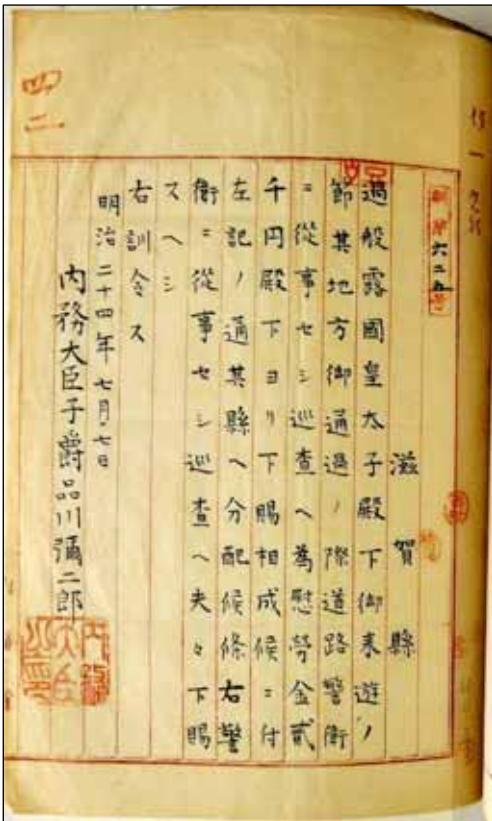 四二
訓第六二五号
滋賀縣
過般露國皇太子殿下御来遊ノ
節其地方御通過ノ際道路警衛
ニ從事セシ巡査ヘ為慰勞金貳
千円殿下ヨリ下賜相成候ニ付
左記ノ通其縣ヘ分配候條右警
衛ニ從事セシ巡査ヘ夫々下賜
スヘシ
右訓令ス
明治二十四年七月七日
内務大臣子爵品川彌二郎
内務大臣之印